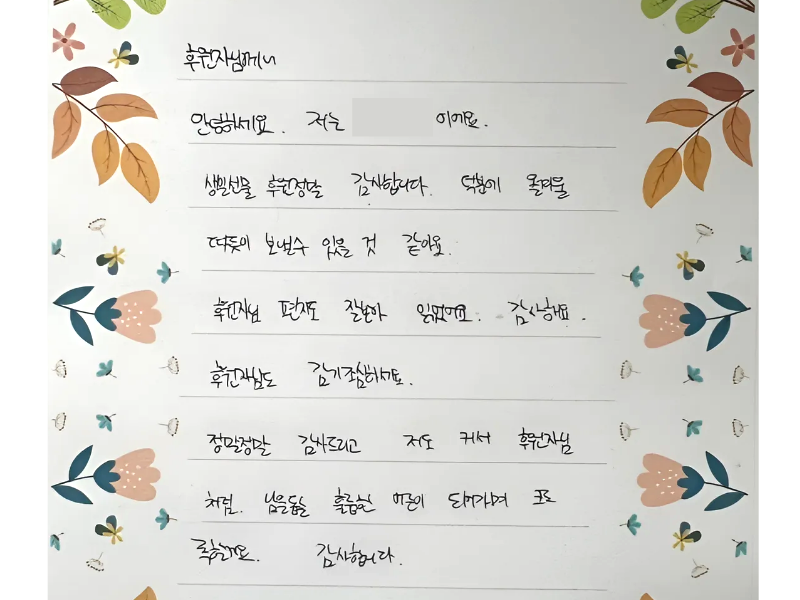 후원자님께
안녕하세요. 저는 이에요.
생일선물 후원정말 감사합니다. 덕분에 올겨울
따듯이 보낼수 있을 것 같아요.
후원자님 편지도 잘받아 읽었어요. 감사해요.
후원자님도 감기조심하세요.
정말정말 감사드리고 저도 커서 후원자님
처럼. 남을돕는 훌륭한 어른이 되어가며 노
력할게요. 감사합니다.